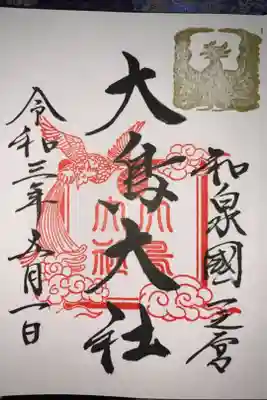 和泉國一之宮
大鳥大社
大鳥
大社
令和三年五月一日